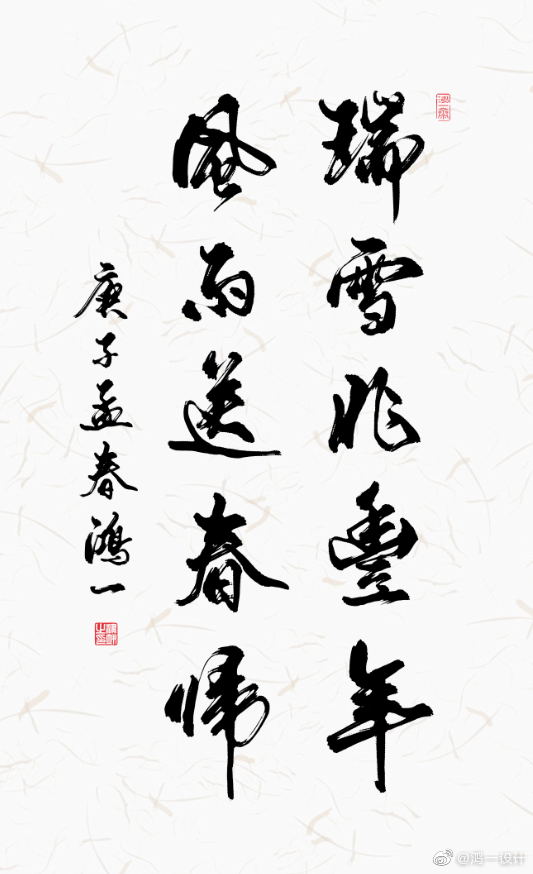 瑞雪兆豐年
風雨送春歸
庚子孟春鴻一
@鸿一设计